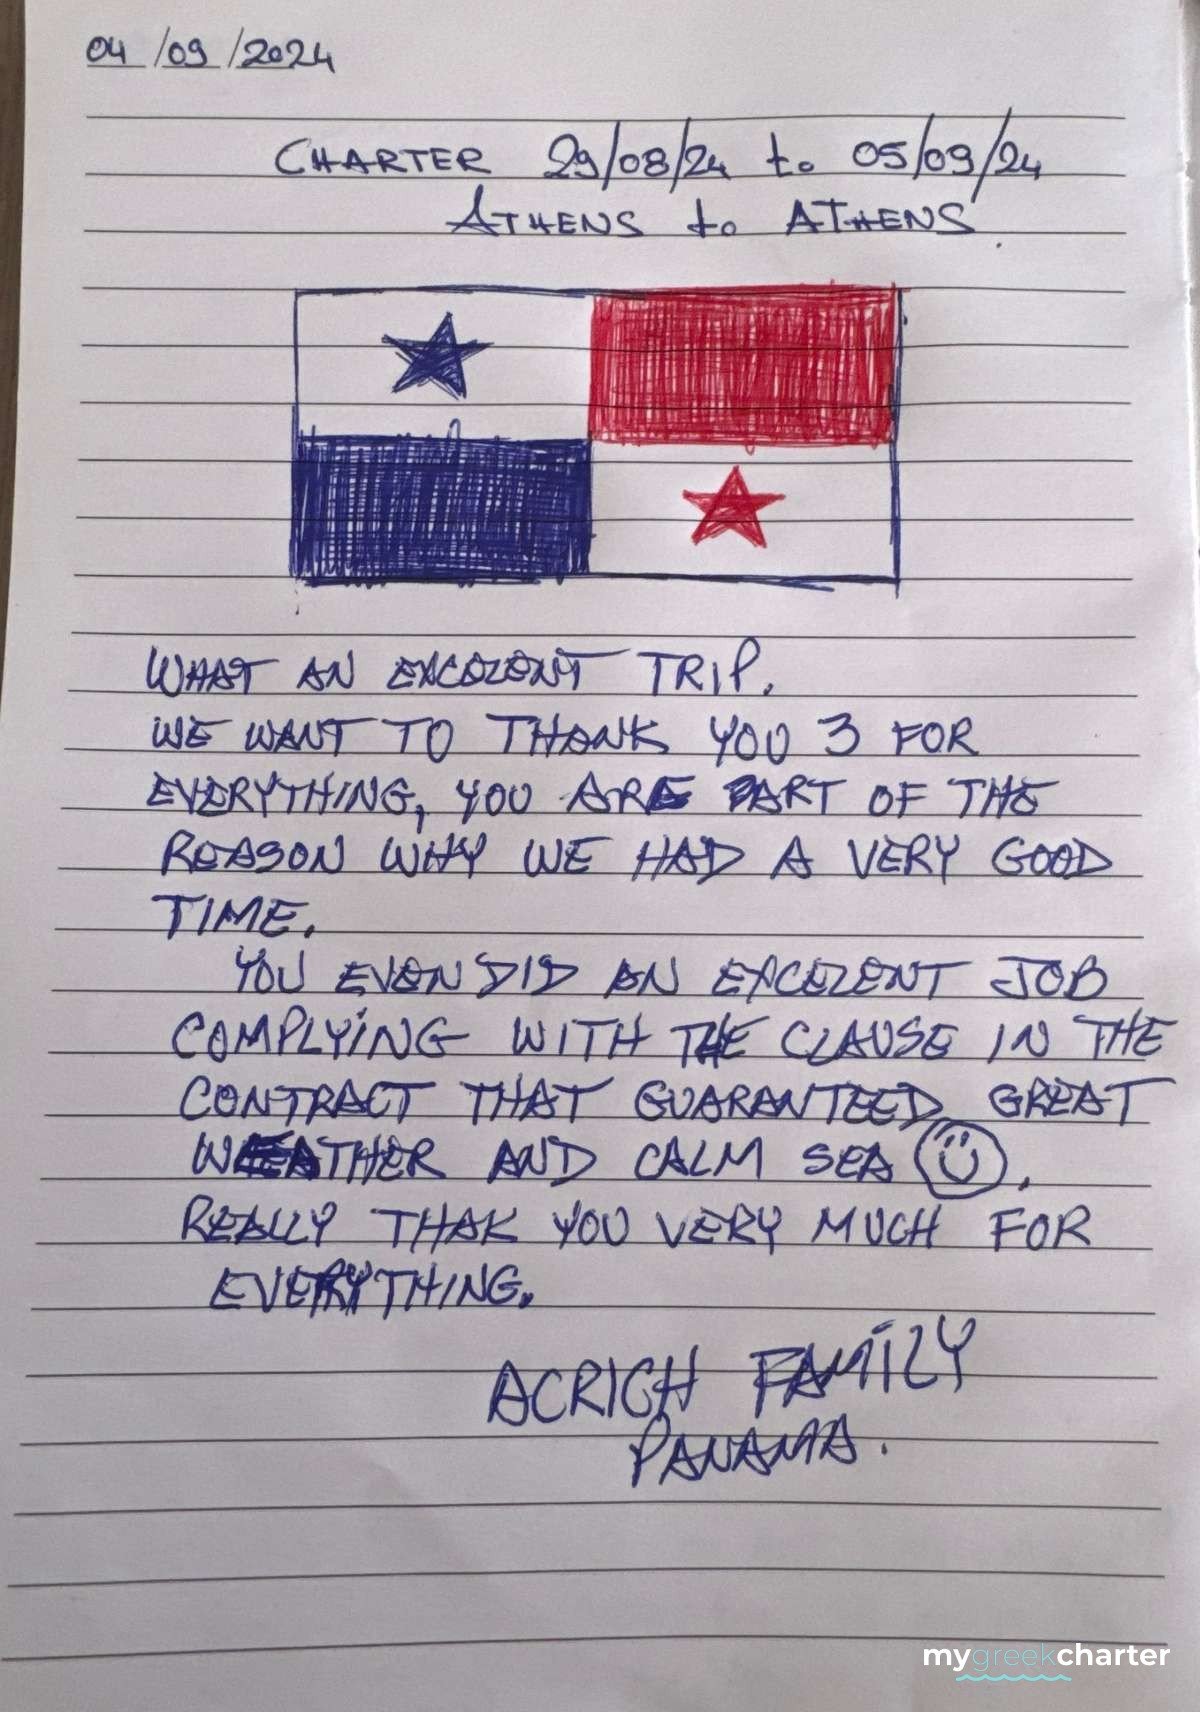 04/09/2024
CHARTER 29/08/24 to 05/09/24
ATHENS to ATHENS
WHAT AN EXCELENT TRIP.
WE WANT TO THANK YOU 3 FOR
EVERYTHING, YOU ARE PART OF THE
REASON WHY WE HAD A VERY GOOD
TIME.
YOU EVEN DID AN EXCELENT JOB
COMPLYING WITH THE CLAUSE IN THE
CONTRACT THAT GUARANTEED GREAT
WEATHER AND CALM SEA
REALLY THAK YOU VERY MUCH FOR
EVERYTHING.
ACRICH FAMILY
PANAMA.
mygreekcharter